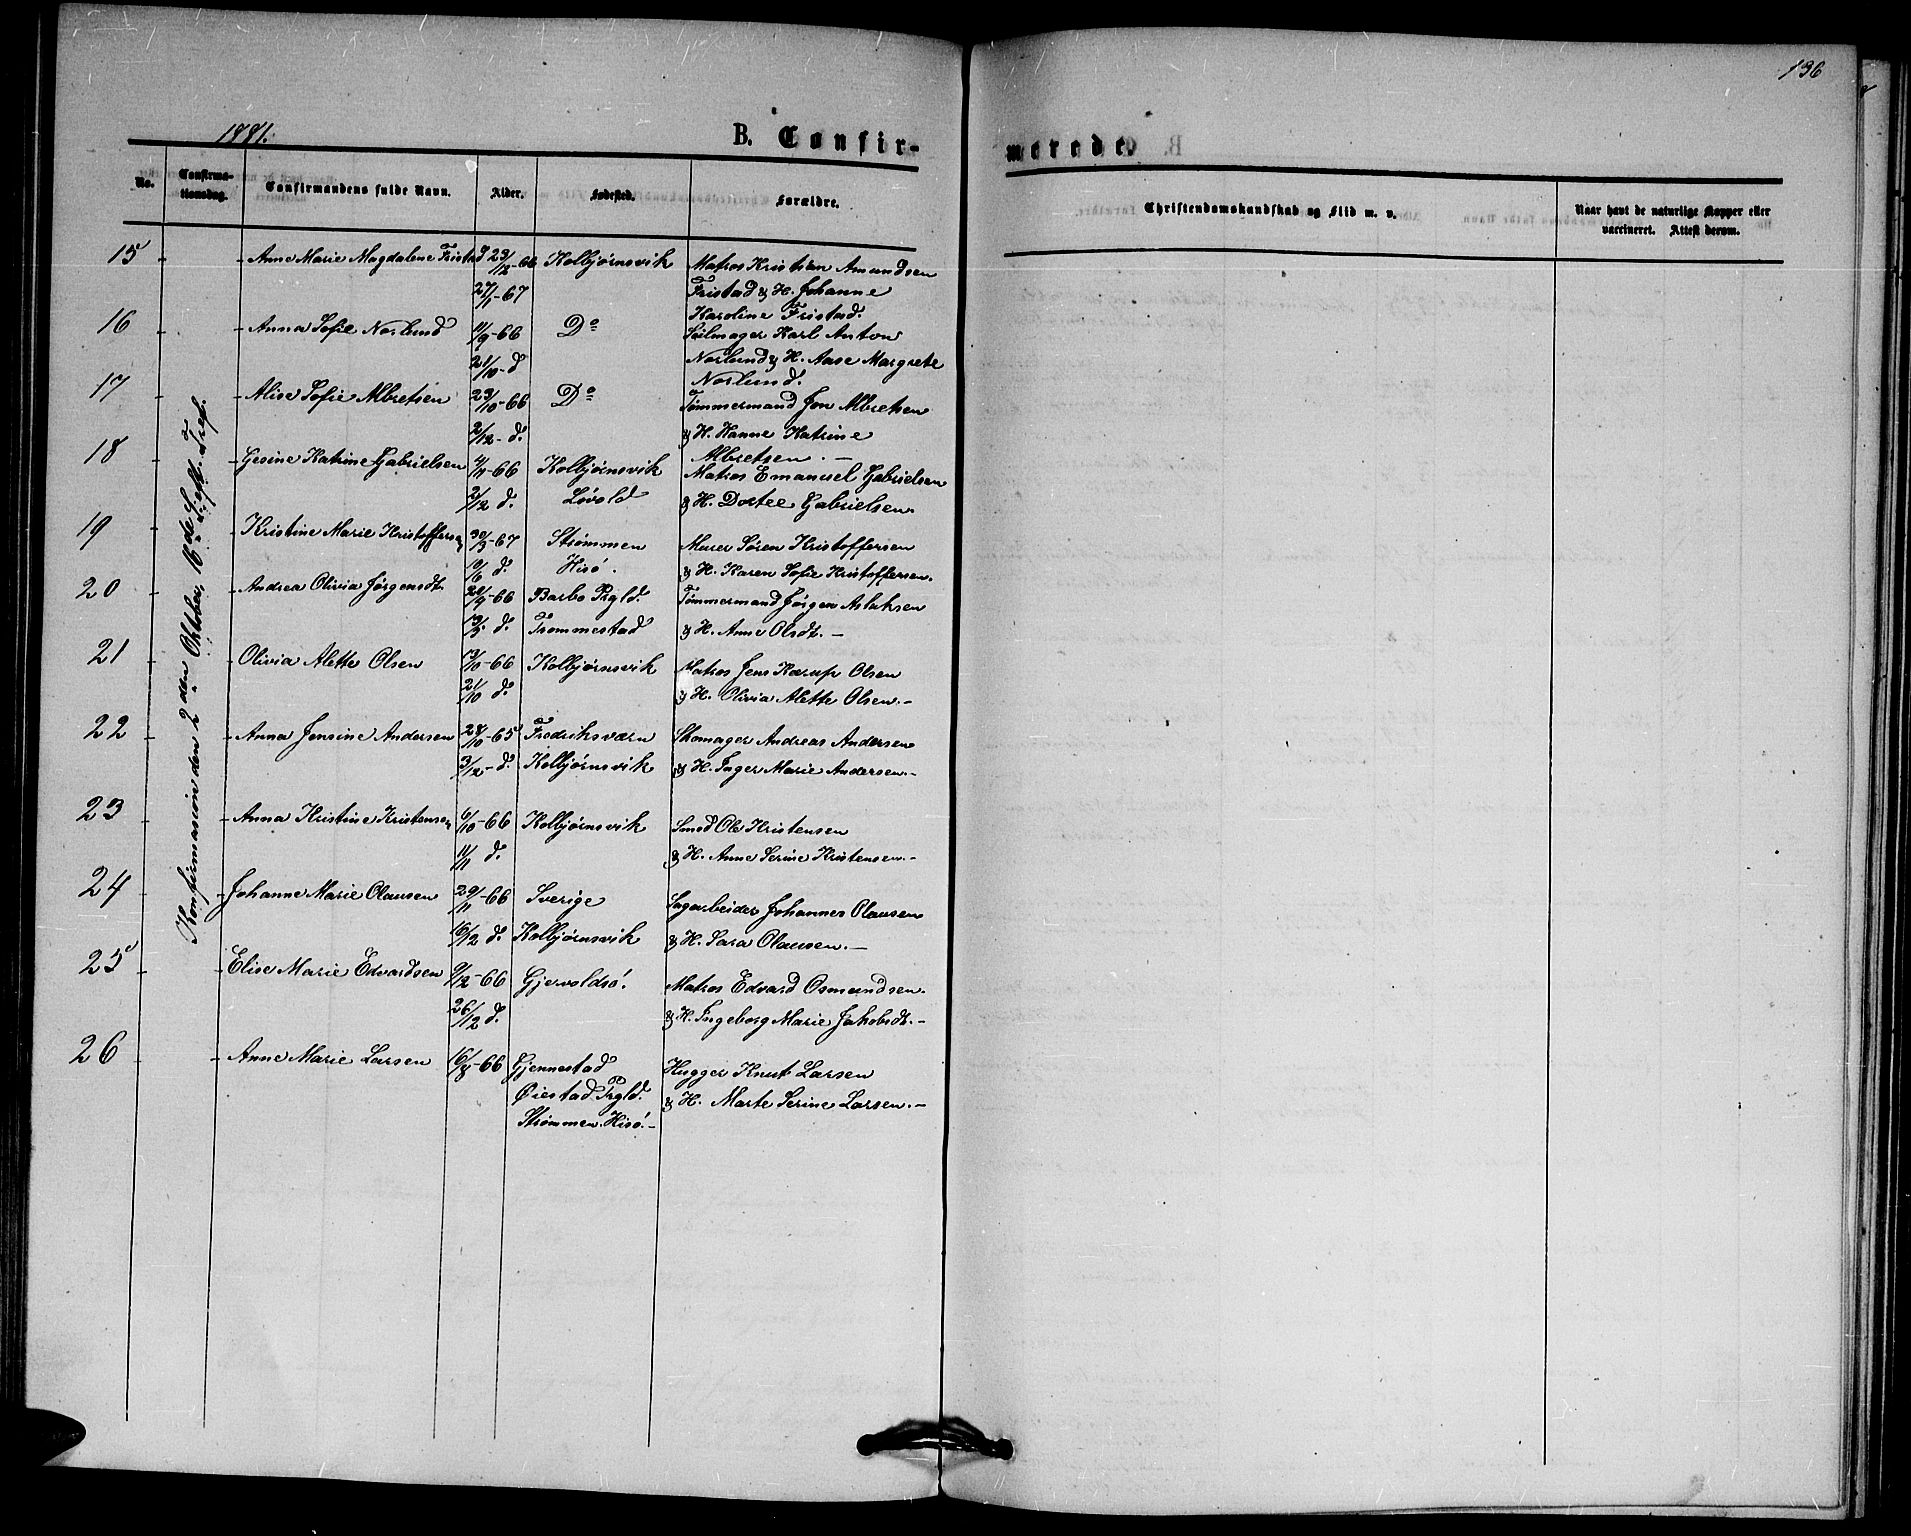 136
1881.
B. Confir-
merede.
No.
Confirma-
tionsdag.
Confirmandens fulde Navn.
Alder.
Fødested.
Forældre.
Christendomskundskab og Flid m. v.
Naar havt de naturlige Kopper eller
vaccineret. Attest derom.
Konfirmasion den 2den Oktober, 16de S. eft. Tref.
15 - - Anne Marie Magdalene Fristad 23/12-66 Kolbjørnsvik Matros Kristian Amundsen
27/1-67 Fristad & H. Johanne
Karoline Fristad.
16 - Anna Sofie Norlund 11/9-66 Do Seilmager Karl Anton
21/10-d Norlund & H. Aase Margrete
Norlund.
17 - - Alise Sofie Albretsen 23/10-66 Do Tømmermand Jon Albretsen
2/12-d. & H. Hanne Katrine
Albretsen. -
18 - - Gesine Katrine Gabrielsen 4/11-66 Kolbjørnsvik Matros Emanuel Gabrielsen
2/12 d. Løvold & H. Dortee Gabrielsen.
19 - - Kristine Marie Kristoffersen 30/3-67 Strømmen Murer Søren Kristoffersen
10/6 d. Hisö. & H. Karen Sofie Kristoffersen.
20 - - Andrea Olivia Jørgensdt. -66 Barbo Prgld. Tømmermand Jørgen Aslaksen
d. Trommestad & H. Anne Olsdt. -
21 - - Olivia Alette Olsen 13/10-66 Kolbjørnsvik Matros Jens Kærup Olsen
21/10 d. & H. Olivia Alette Olsen. -
22 - - Anna Jensine Andersen 28/10-65 Fredriksværn Skomager Andreas Andersen
3/12-d. Kolbjørnsvik & H. Inger Marie Andersen. -
23 - - Anna Kristine Kristensen 6/10-66 Kolbjørnsvik Smed Ole Kristensen
11/11 d. & H. Anne Serine Kristensen. -
24 - - Johanne Marie Olausen 29/11-66 Sverige Sagarbeider Johannes Olausen
16/12 d. Kolbjørnsvik & H. Sara Olausen. -
25 - - Elise Marie Edvardsen 9/12-66 Gjervoldsö. Matros Edvard Osmundsen.
26/12 d. & H. Ingeborg Marie Jakobsdt. -
26 - - Anne Marie Larsen 16/8-66 Gjennestad Hugger Knut Larsen
Øiestad Prgld. & H. Marte Serine Larsen. -
Strømmen. Hisö. -